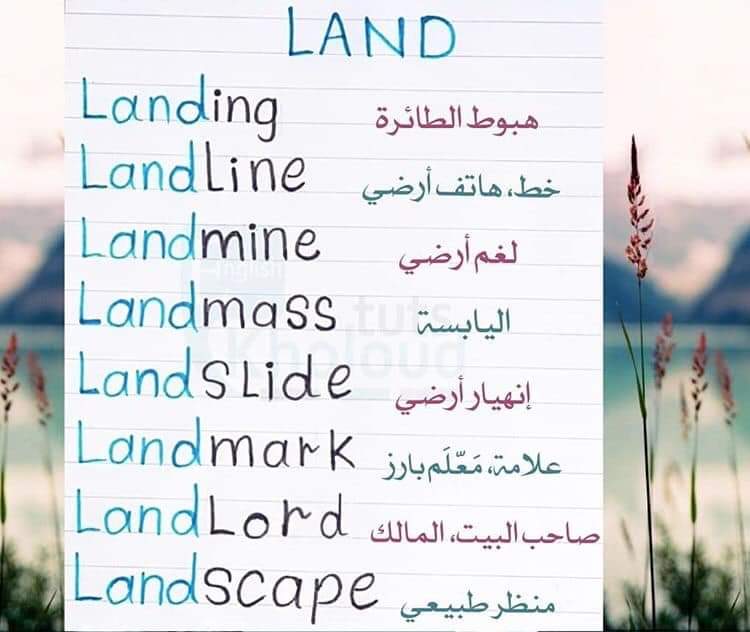 LAND
Landing هبوط الطائرة
Landline خط، هاتف أرضي
Landmine لغم أرضي
Landmass اليابسة
Landslide إنهيار أرضي
Landmark علامة، مَعّلَم بارز
LandLord صاحب البيت، المالك
Landscape منظر طبيعي
English
tuts
Kholoud